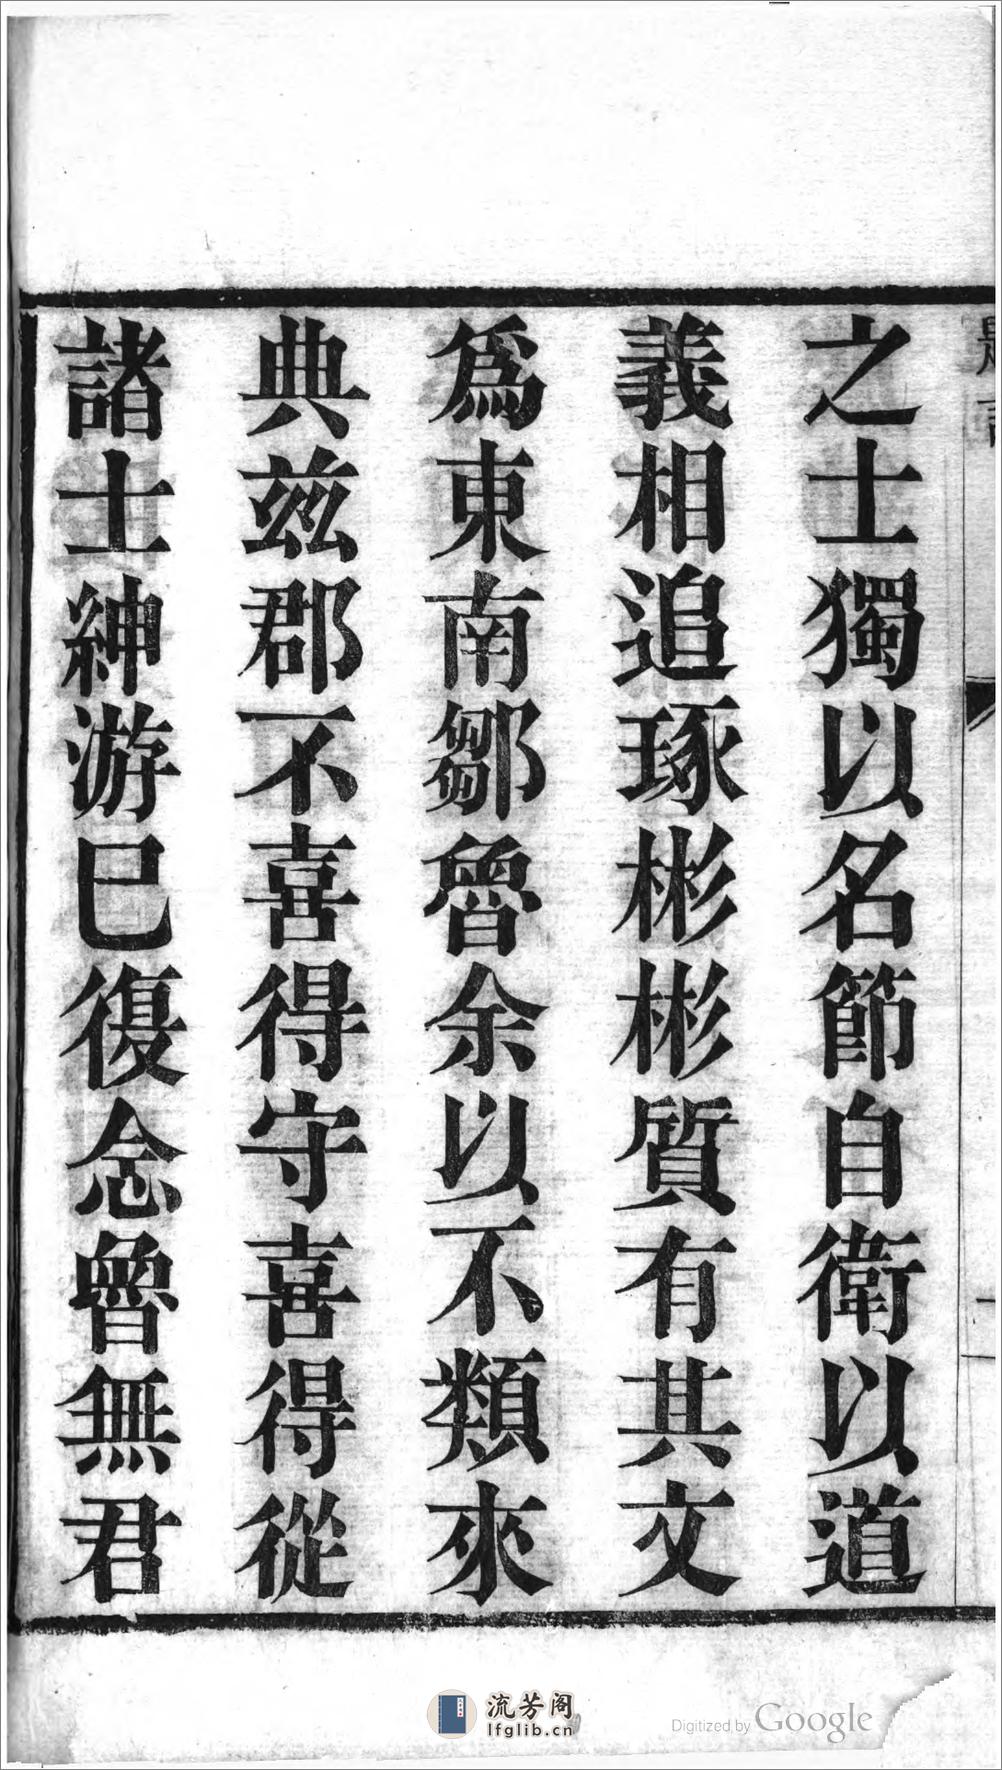 之士獨以名節自衛以道
義相追琢彬彬質有其文
為東南鄒魯余以不類來
典茲郡不喜得守喜得從
諸士紳游已復念魯無君
流芳阁
lfglib.cn
Digitized by Google